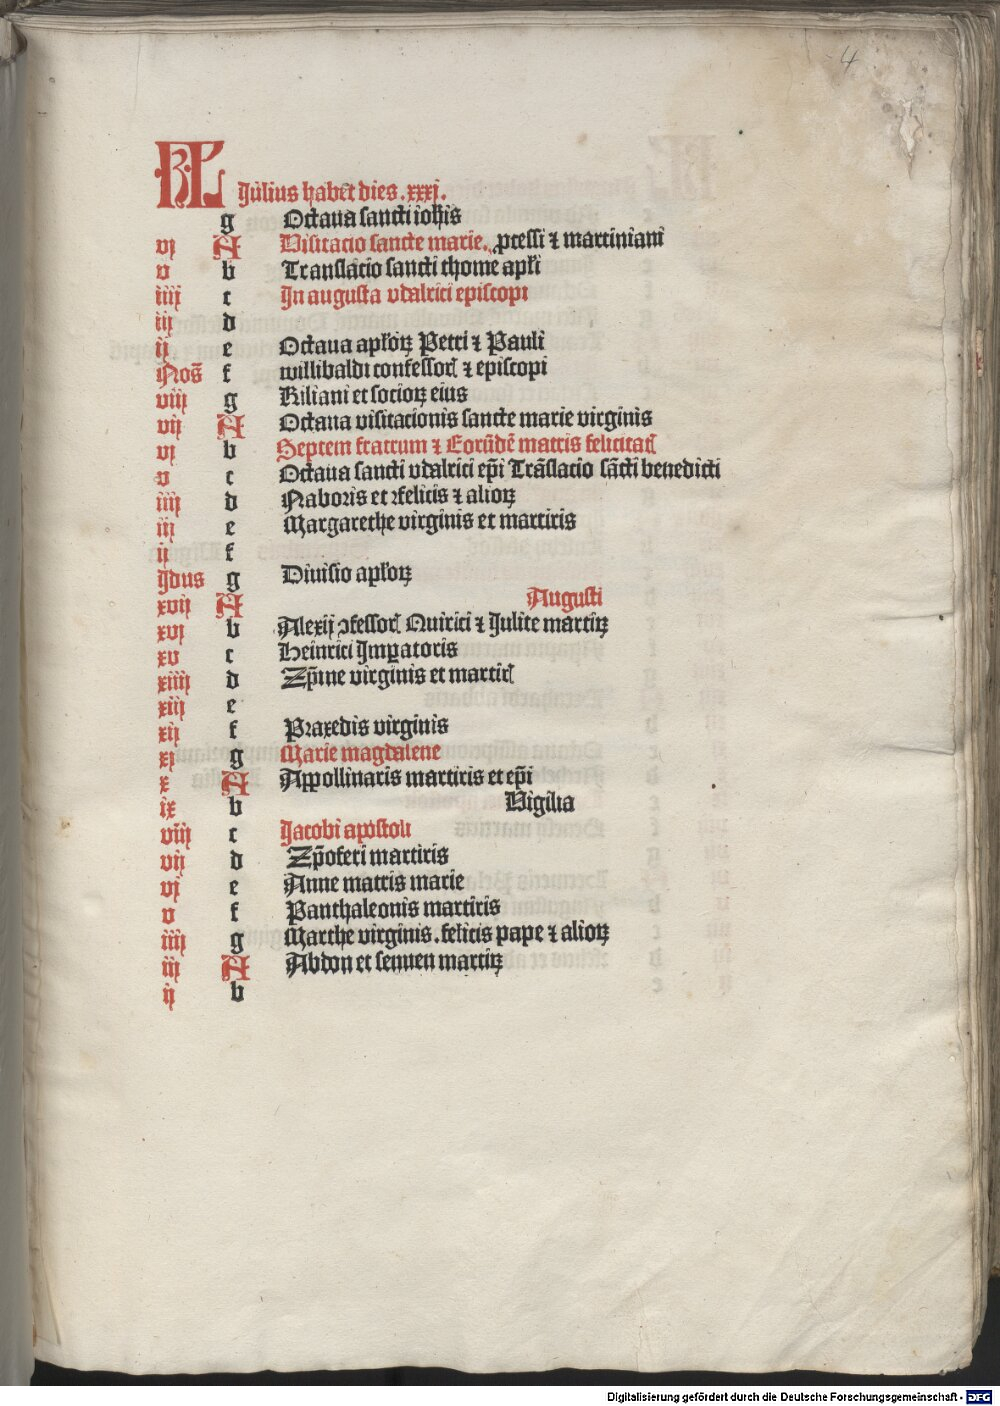 4
KL Julius habet dies .xxxj.
g Octaua sancti ioħis
vj A Visitacio sancte marie. ꝓcessi ⁊ martiniani
v b Translacio sancti thome apłi
iiij c In augusta vdalrici episcopi
iij d
ij e Octaua apłoꝝ Petri ⁊ Pauli
Nos̄ f willibaldi confessoꝝ ⁊ episcopi
viij g Kiliani et socioꝝ eius
vij A Octaua visitacionis sancte marie virginis
vj b Septem fratrum ⁊ Eorūdē matris felicitatꝭ
v c Octaua sancti vdalrici ep̄i Trāslacio sācti benedicti
iiij d Naboris et felicis ⁊ alioꝝ
iij e Margarethe virginis et martiris
ij f
Jdus g Diuisio apłoꝝ
xvij A Augusti
xvj b Alexij ↄfessorꝭ Quirici ⁊ Julite martiꝝ
xv c Heinrici Imꝑatoris
xiiij d Xp̄ine virginis et martirꝭ
xiij e
xij f Praxedis virginis
xj g Marie magdalene
x A Appollinaris martiris et ep̄i
ix b Vigilia
viij c Jacobi apostoli
vij d Xp̄oferi martiris
vj e Anne matris marie
v f Panthaleonis martiris
iiij g Marthe virginis. felicis pape ⁊ alioꝝ
iij A Abdon et sennen martiꝝ
ij b
Digitalisierung gefördert durch die Deutsche Forschungsgemeinschaft - DFG